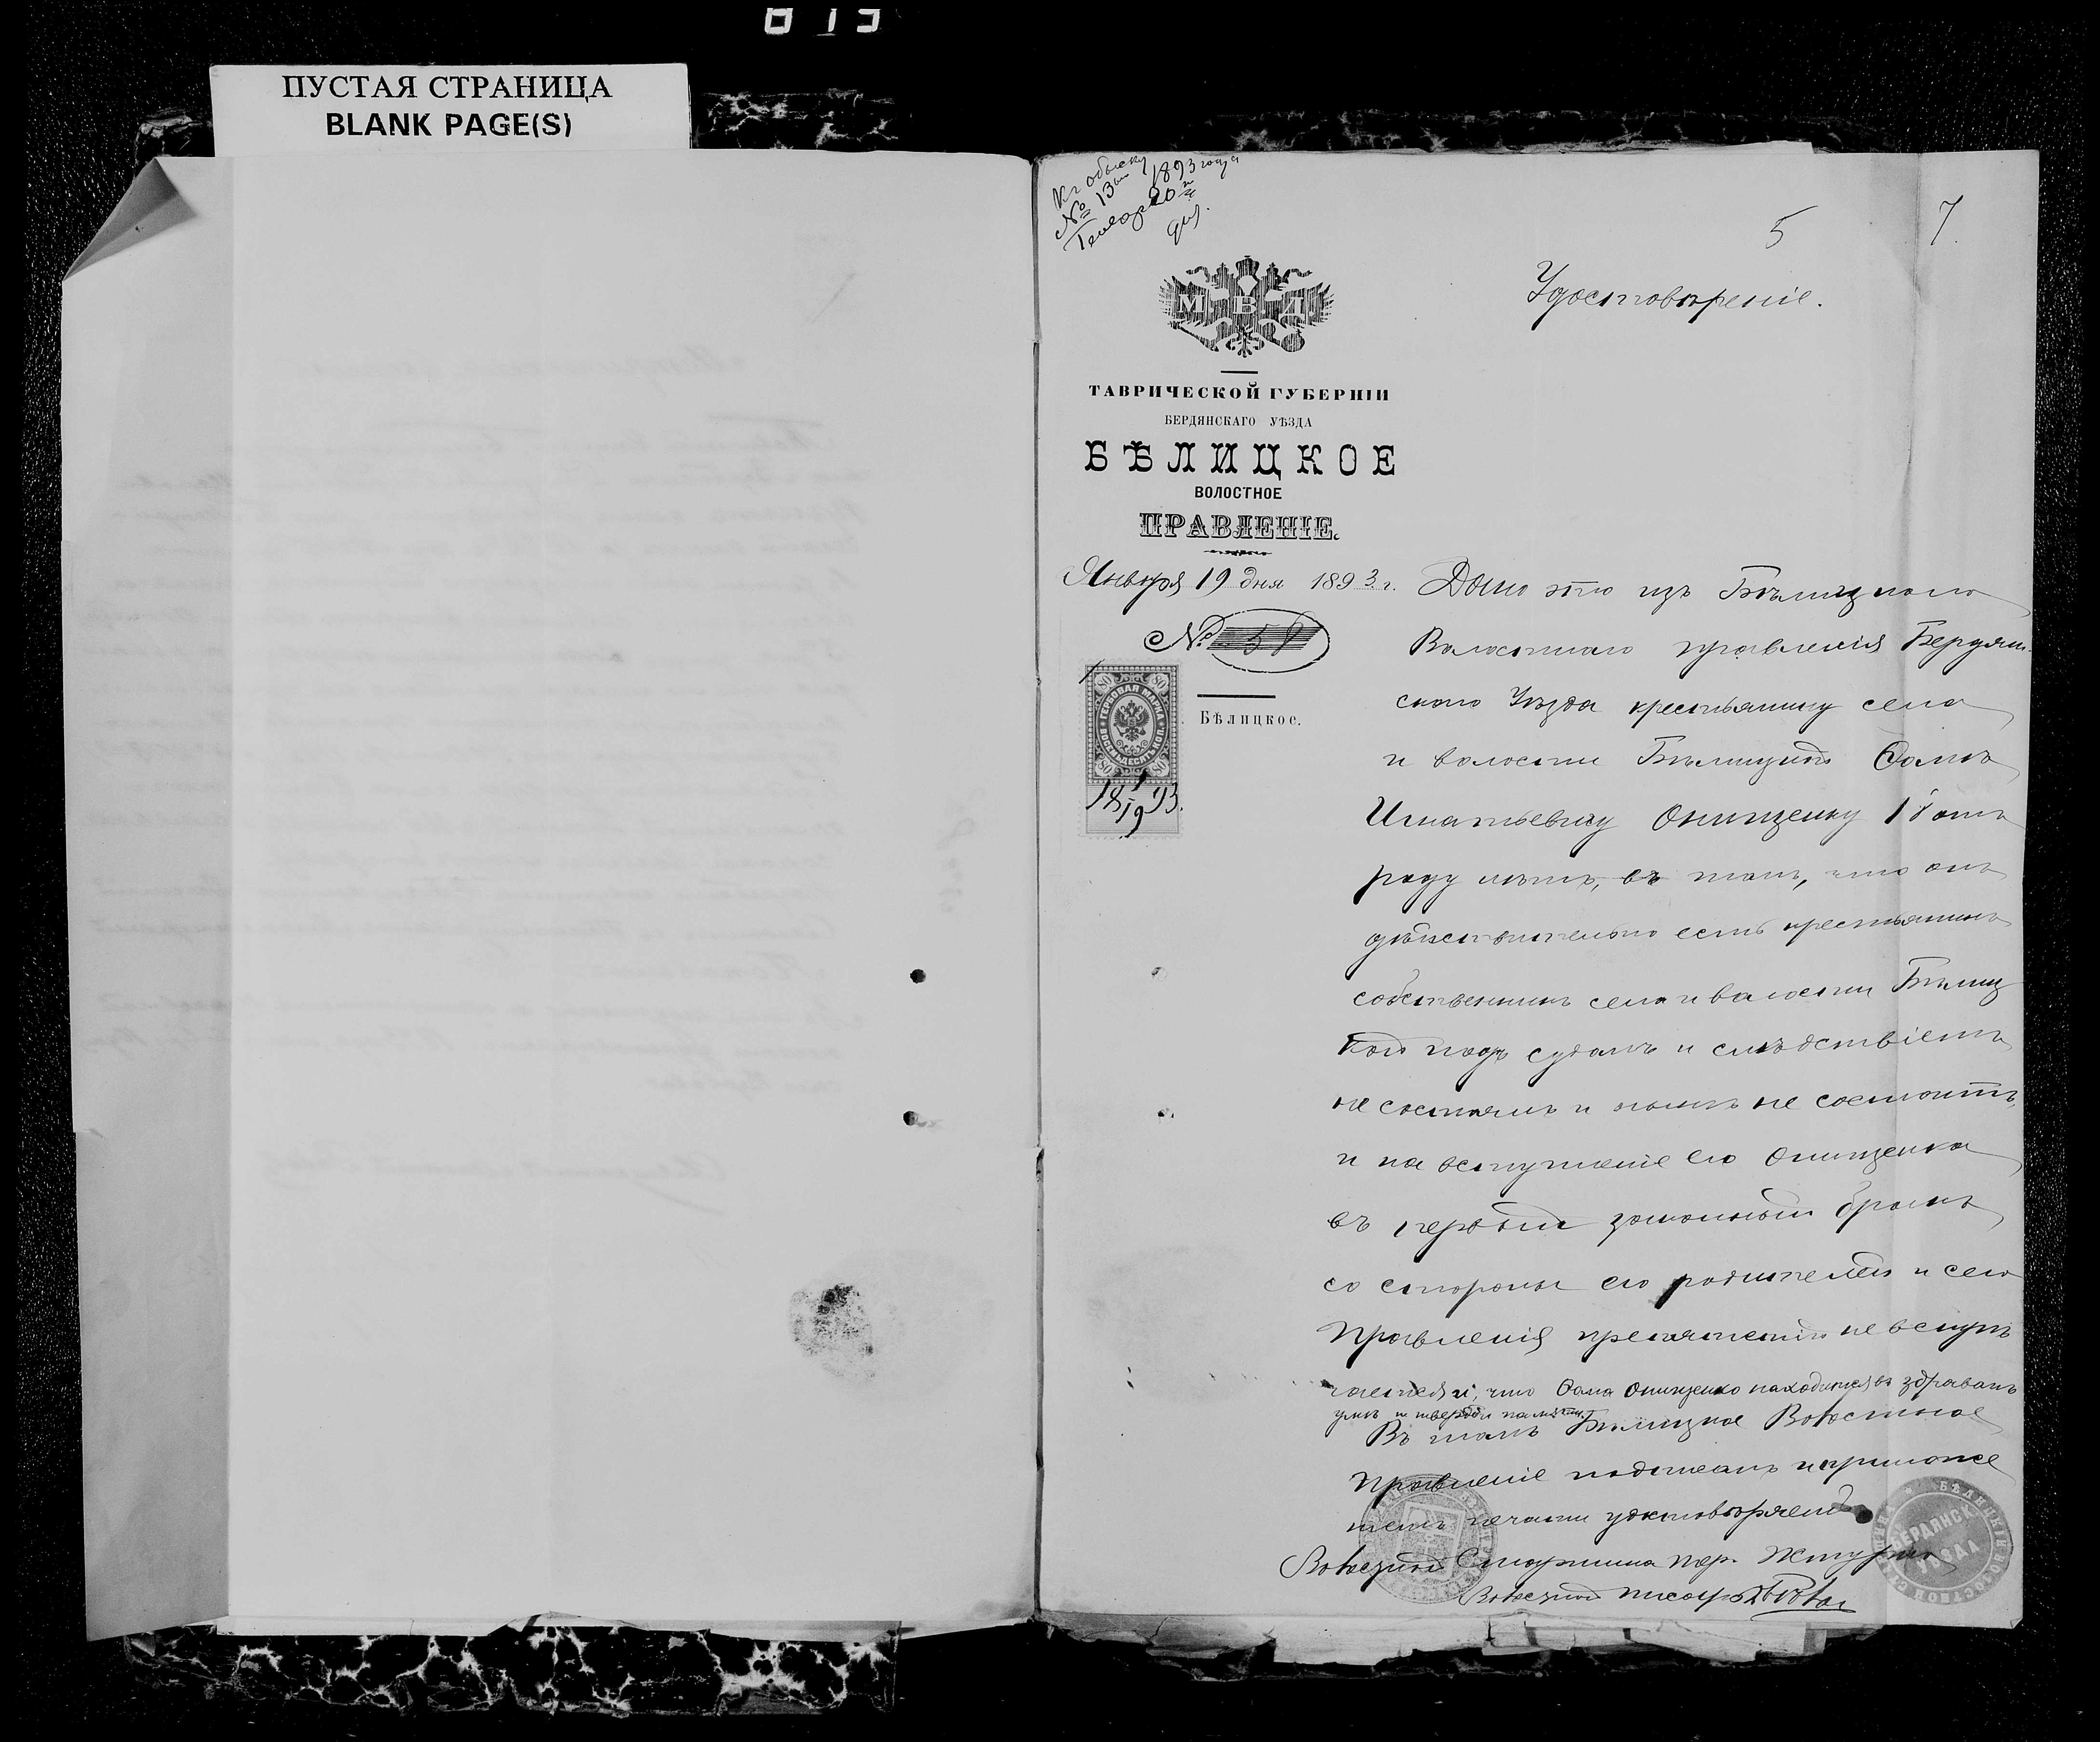 ПУСТАЯ СТРАНИЦА
BLANK PAGE(S)
Къ обыску
№ 13ый 1893 года
Генваря 20го
дня.
5
7.
Удостовѣреніе.
М В Д
ТАВРИЧЕСКОЙ ГУБЕРНІИ
БЕРДЯНСКАГО УѢЗДА
БѢЛИЦКОЕ
ВОЛОСТНОЕ
ПРАВЛЕНІЕ.
Января 19 дня 1893 г.
№ 58
Бѣлицкое.
80 80
ГЕРБОВАЯ МАРКА
ВОСЕМЬДЕСЯТЪ КОП.
80 80
18 19/I 93.
Дано это изъ Бѣлицкаго
Волостнаго правленія Бердян-
скаго Уѣзда крестьянину села
и волости Бѣлицкой Ѳомѣ
Игнатьевичу Онищенку 18 отъ
роду лѣтъ, въ томъ, что онъ
дѣйствительно есть крестьянинъ
собственникъ села и волости Бѣлиц
кой подъ судомъ и слѣдствіемъ
не состоялъ и нынѣ не состоитъ,
и на вступленіе его Онищенка
въ первый законный бракъ
со стороны его родителей и сего
Правленія препятствій не встрѣ
чается и, что Ѳома Онищенко находится въ здравомъ
умѣ и твердой памяти.
Въ томъ Бѣлицкое Волостное
Правленіе подписомъ и приложе
ніемъ печати удостовѣряетъ
Волостной Старшина
Волостной писарь
БЕРДЯНСК.
УѢЗДА